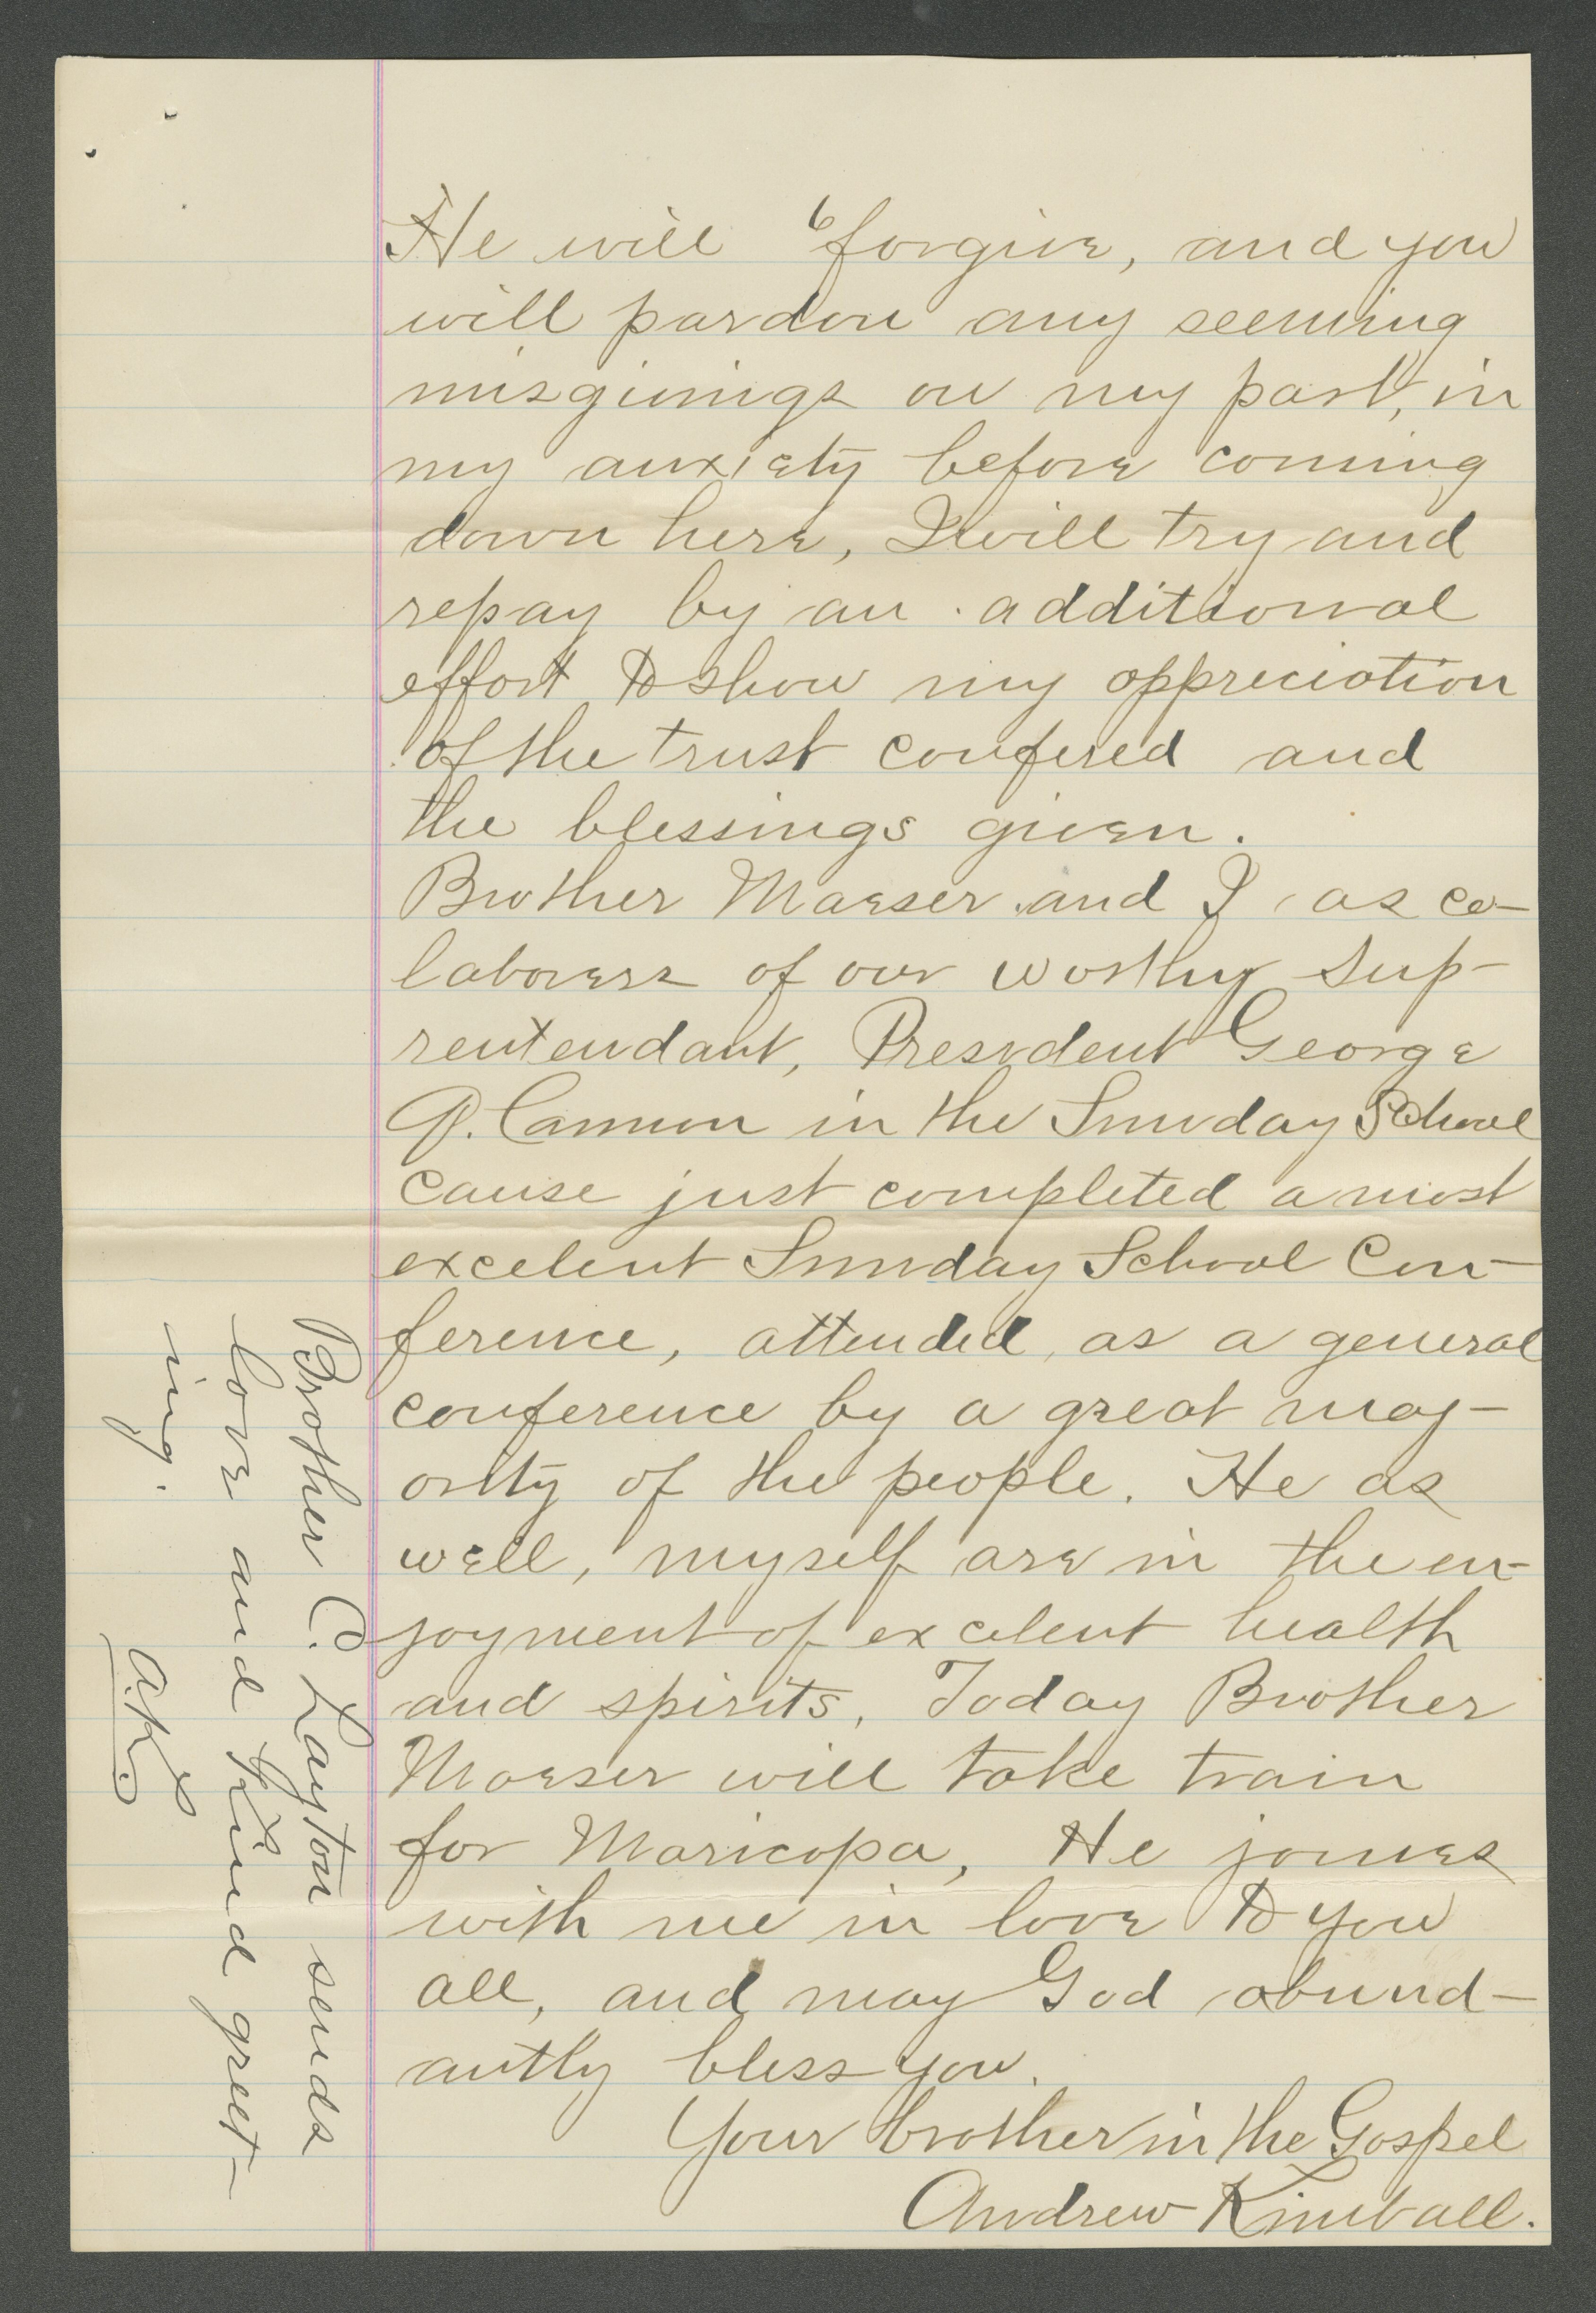 6
He will forgive, and you
will pardon any seeming
misgivings on my part, in
my anxiety before coming
down here, I will try and
repay by an additional
effort to show my oppreciation
of the trust confered and
the blessings given.
Brother Maeser and I as co-
laborers of our worthy Sup-
rentendant, President George
Q. Cannon in the Sunday School
cause just completed a most
excelent Sunday School Con-
ference, attended as a general
conference by a great maj-
ority of the people. He as
well, myself are in the en-
joyment of excelent health
and spirits. Today Brother
Maeser will take train
for Maricopa, He joines
with me in love to you
all, and may God abund-
antly bless you.
Your brother in the Gospel
Andrew Kimball.
Brother C. Layton sends
love and kind greet-
ing.
A.K.